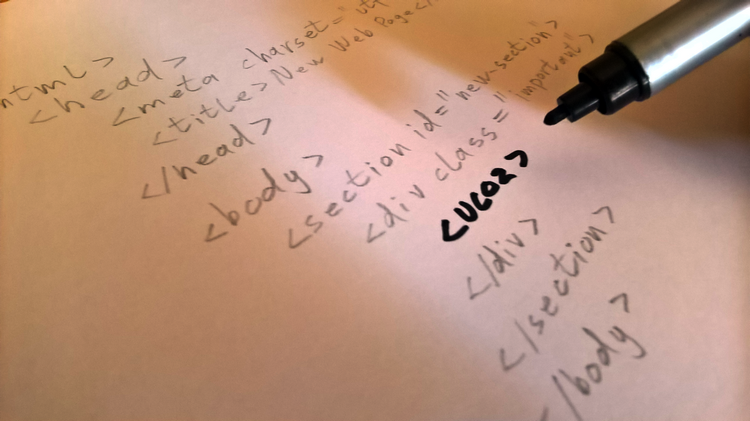 html>
<head>
<meta charset="utf
<title>New Web Page</
</head>
<body>
<section id="new-section">
<div class="important">
<ucoz>
</div>
</section>
</body>